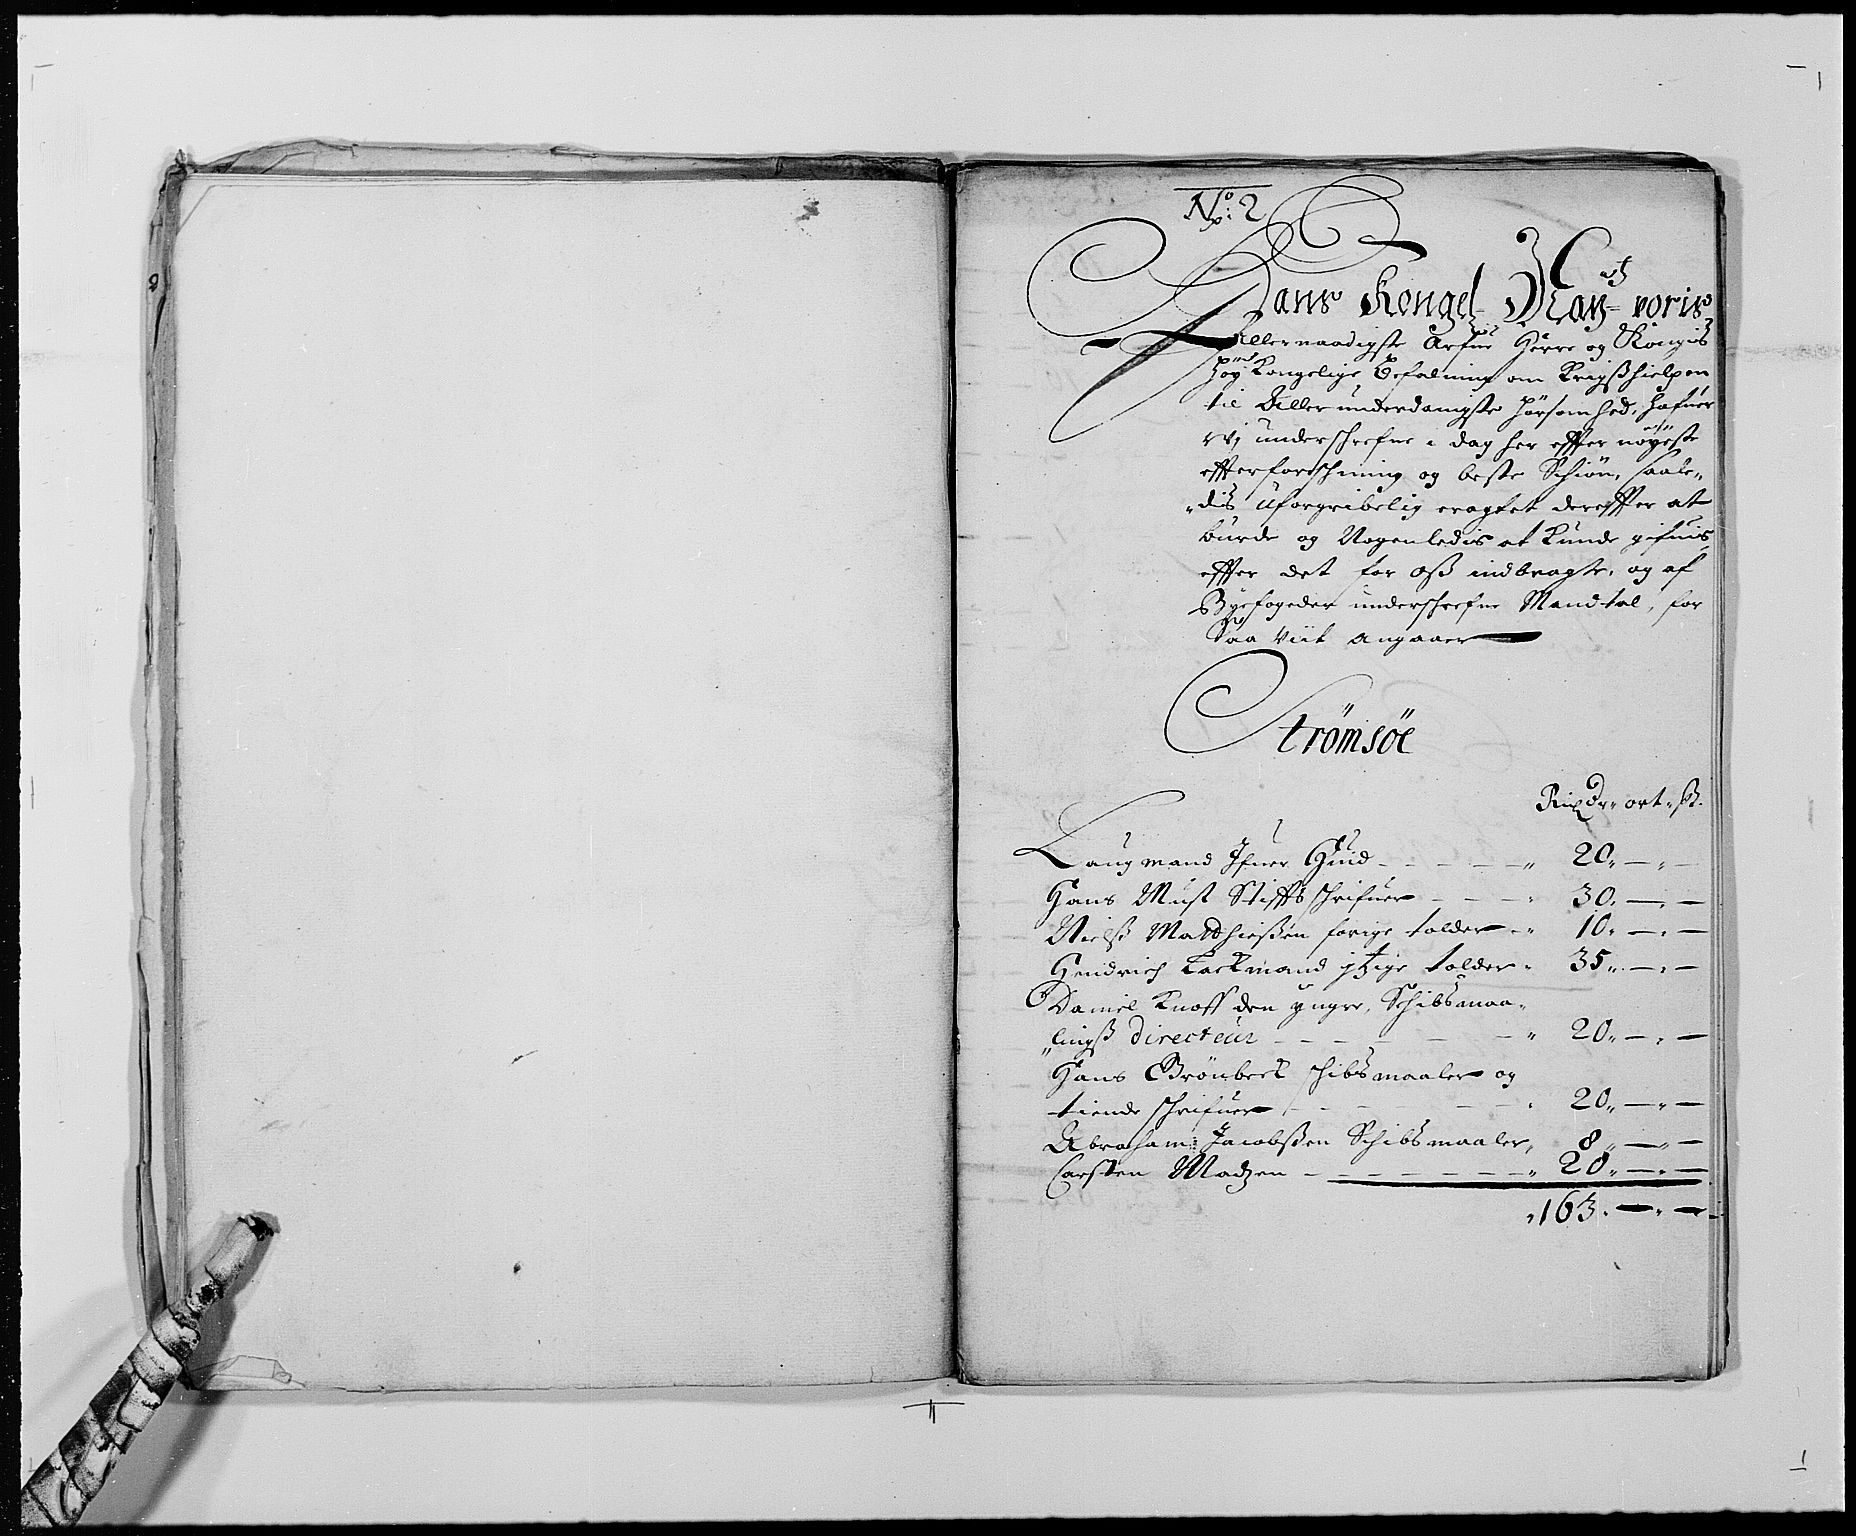 No: 2
Hans Kongel May-tz voris
Allernaadigste Arfue Herre og Kongis
høy Kongelige Befalning om Krigsshielpen
til Allerunderdanigste hørsomhed, hafuer
wj underschrefne i dag her effter nøyeste
efterforschning og beste Schiøn, saale„
„dis uforgribelig eragtet dereffter at
burde og Nogenledis at kunde gifuis,
effter det for oss indbragte, og af
Byefogeden underschrefne Mandtal, for
Saa viit angaaer
Strømsøe
Rixdr„ ort„ ss.
Laugmand Ifuer Huid - - - - „ 20„ — „ —
Hans Must Stifftsschrifuer - - - „ 30„ — „ —
Nielss Matthiessen forige tolder - „ 10„ — „ —
Hendrich Lackmand jtzige tolder „ 35„ — „ —
Daniel Knoff den yngre, Schibsmaa„
„lingss Directeur - - - - - „ 20„ — „ —
Hans Brønbeck schibsmaaler og
tiende schrifuer - - - - - „ 20„ — „ —
Abraham Jacobssen Schibsmaaler„ 8„ — „ —
Carsten Madzen - - - - - - „ 20„ — „ —
„163„ — „ —